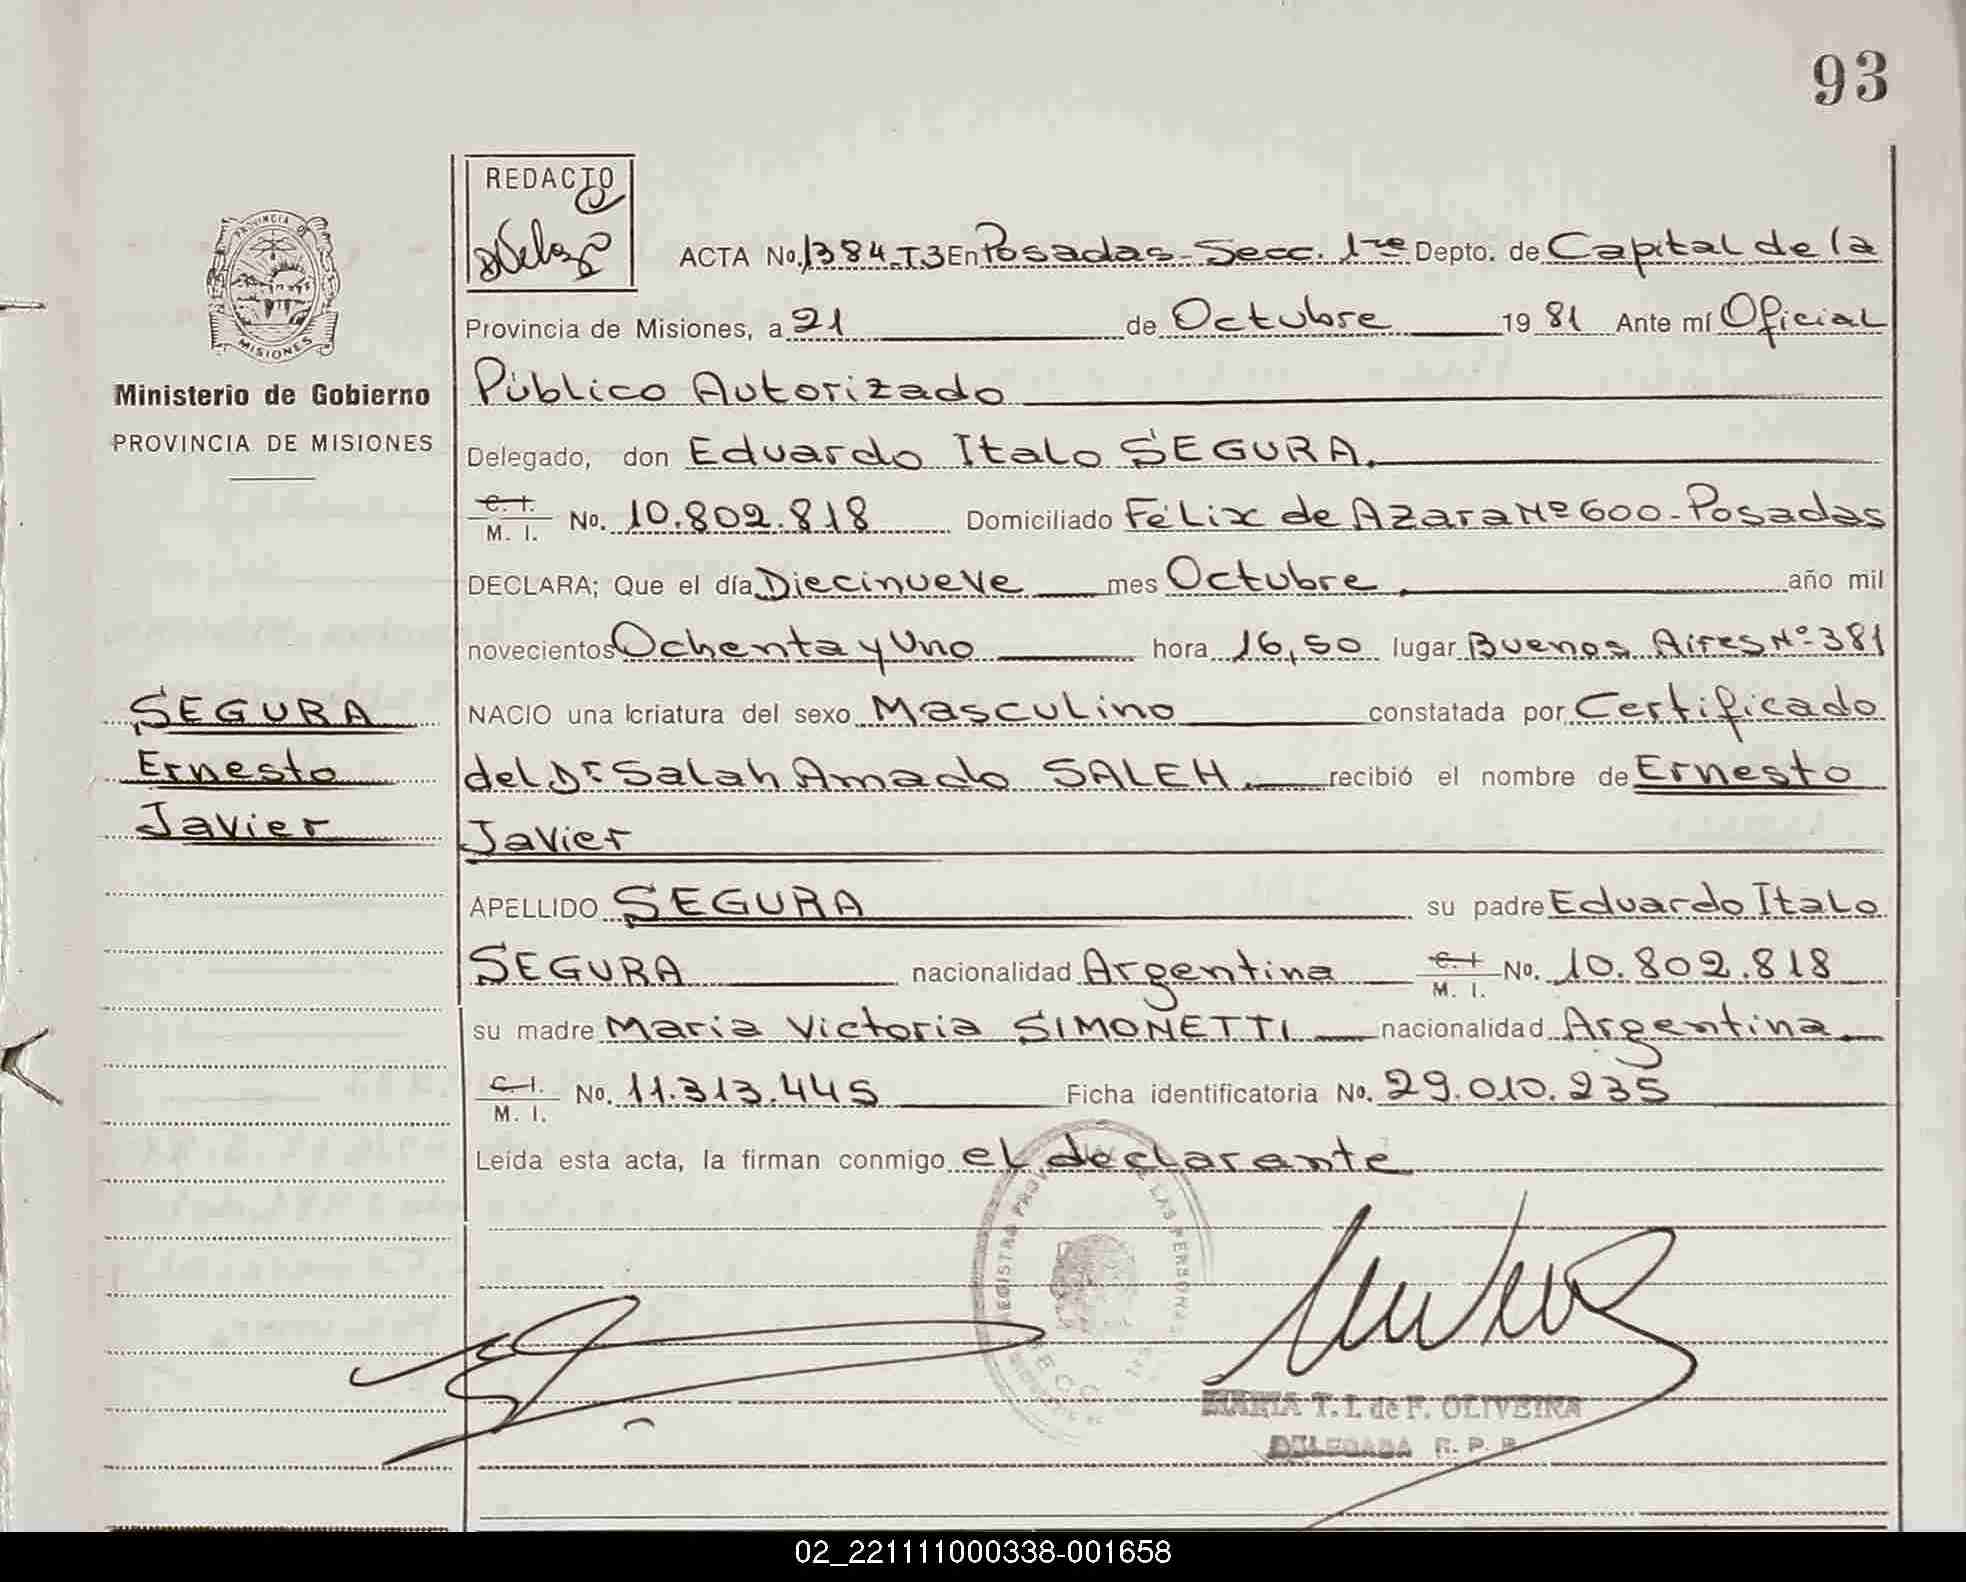 93
REDACTO
PROVINCIA DE
MISIONES
ACTA No. 1384 T3 En Posadas - Secc. 1ra Depto. de Capital de la
Provincia de Misiones, a 21 de Octubre 19 81 Ante mí Oficial
Ministerio de Gobierno
Público Autorizado
PROVINCIA DE MISIONES
Delegado, don Eduardo Italo SEGURA.
C. I.
M. I. No. 10.802.818 Domiciliado Félix de Azara Nº 600 - Posadas
DECLARA; Que el día Diecinueve mes Octubre año mil
novecientos Ochenta y Uno hora 16,50 lugar Buenos Aires Nº 381
SEGURA
NACIO una criatura del sexo Masculino constatada por Certificado
Ernesto
del Dr. Salah Amado SALEH. recibió el nombre de Ernesto
Javier
Javier
APELLIDO SEGURA su padre Eduardo Italo
SEGURA nacionalidad Argentina C. I. M. I. No. 10.802.818
su madre María Victoria SIMONETTI nacionalidad Argentina
C. I.
M. I. No. 11.313.445 Ficha identificatoria No. 29.010.235
Leída esta acta, la firman conmigo el declarante
REGISTRO PROV DE LAS PERSONAS
MARIA T. I. de F. OLIVEIRA
DELEGADA R. P. P.
02_221111000338-001658